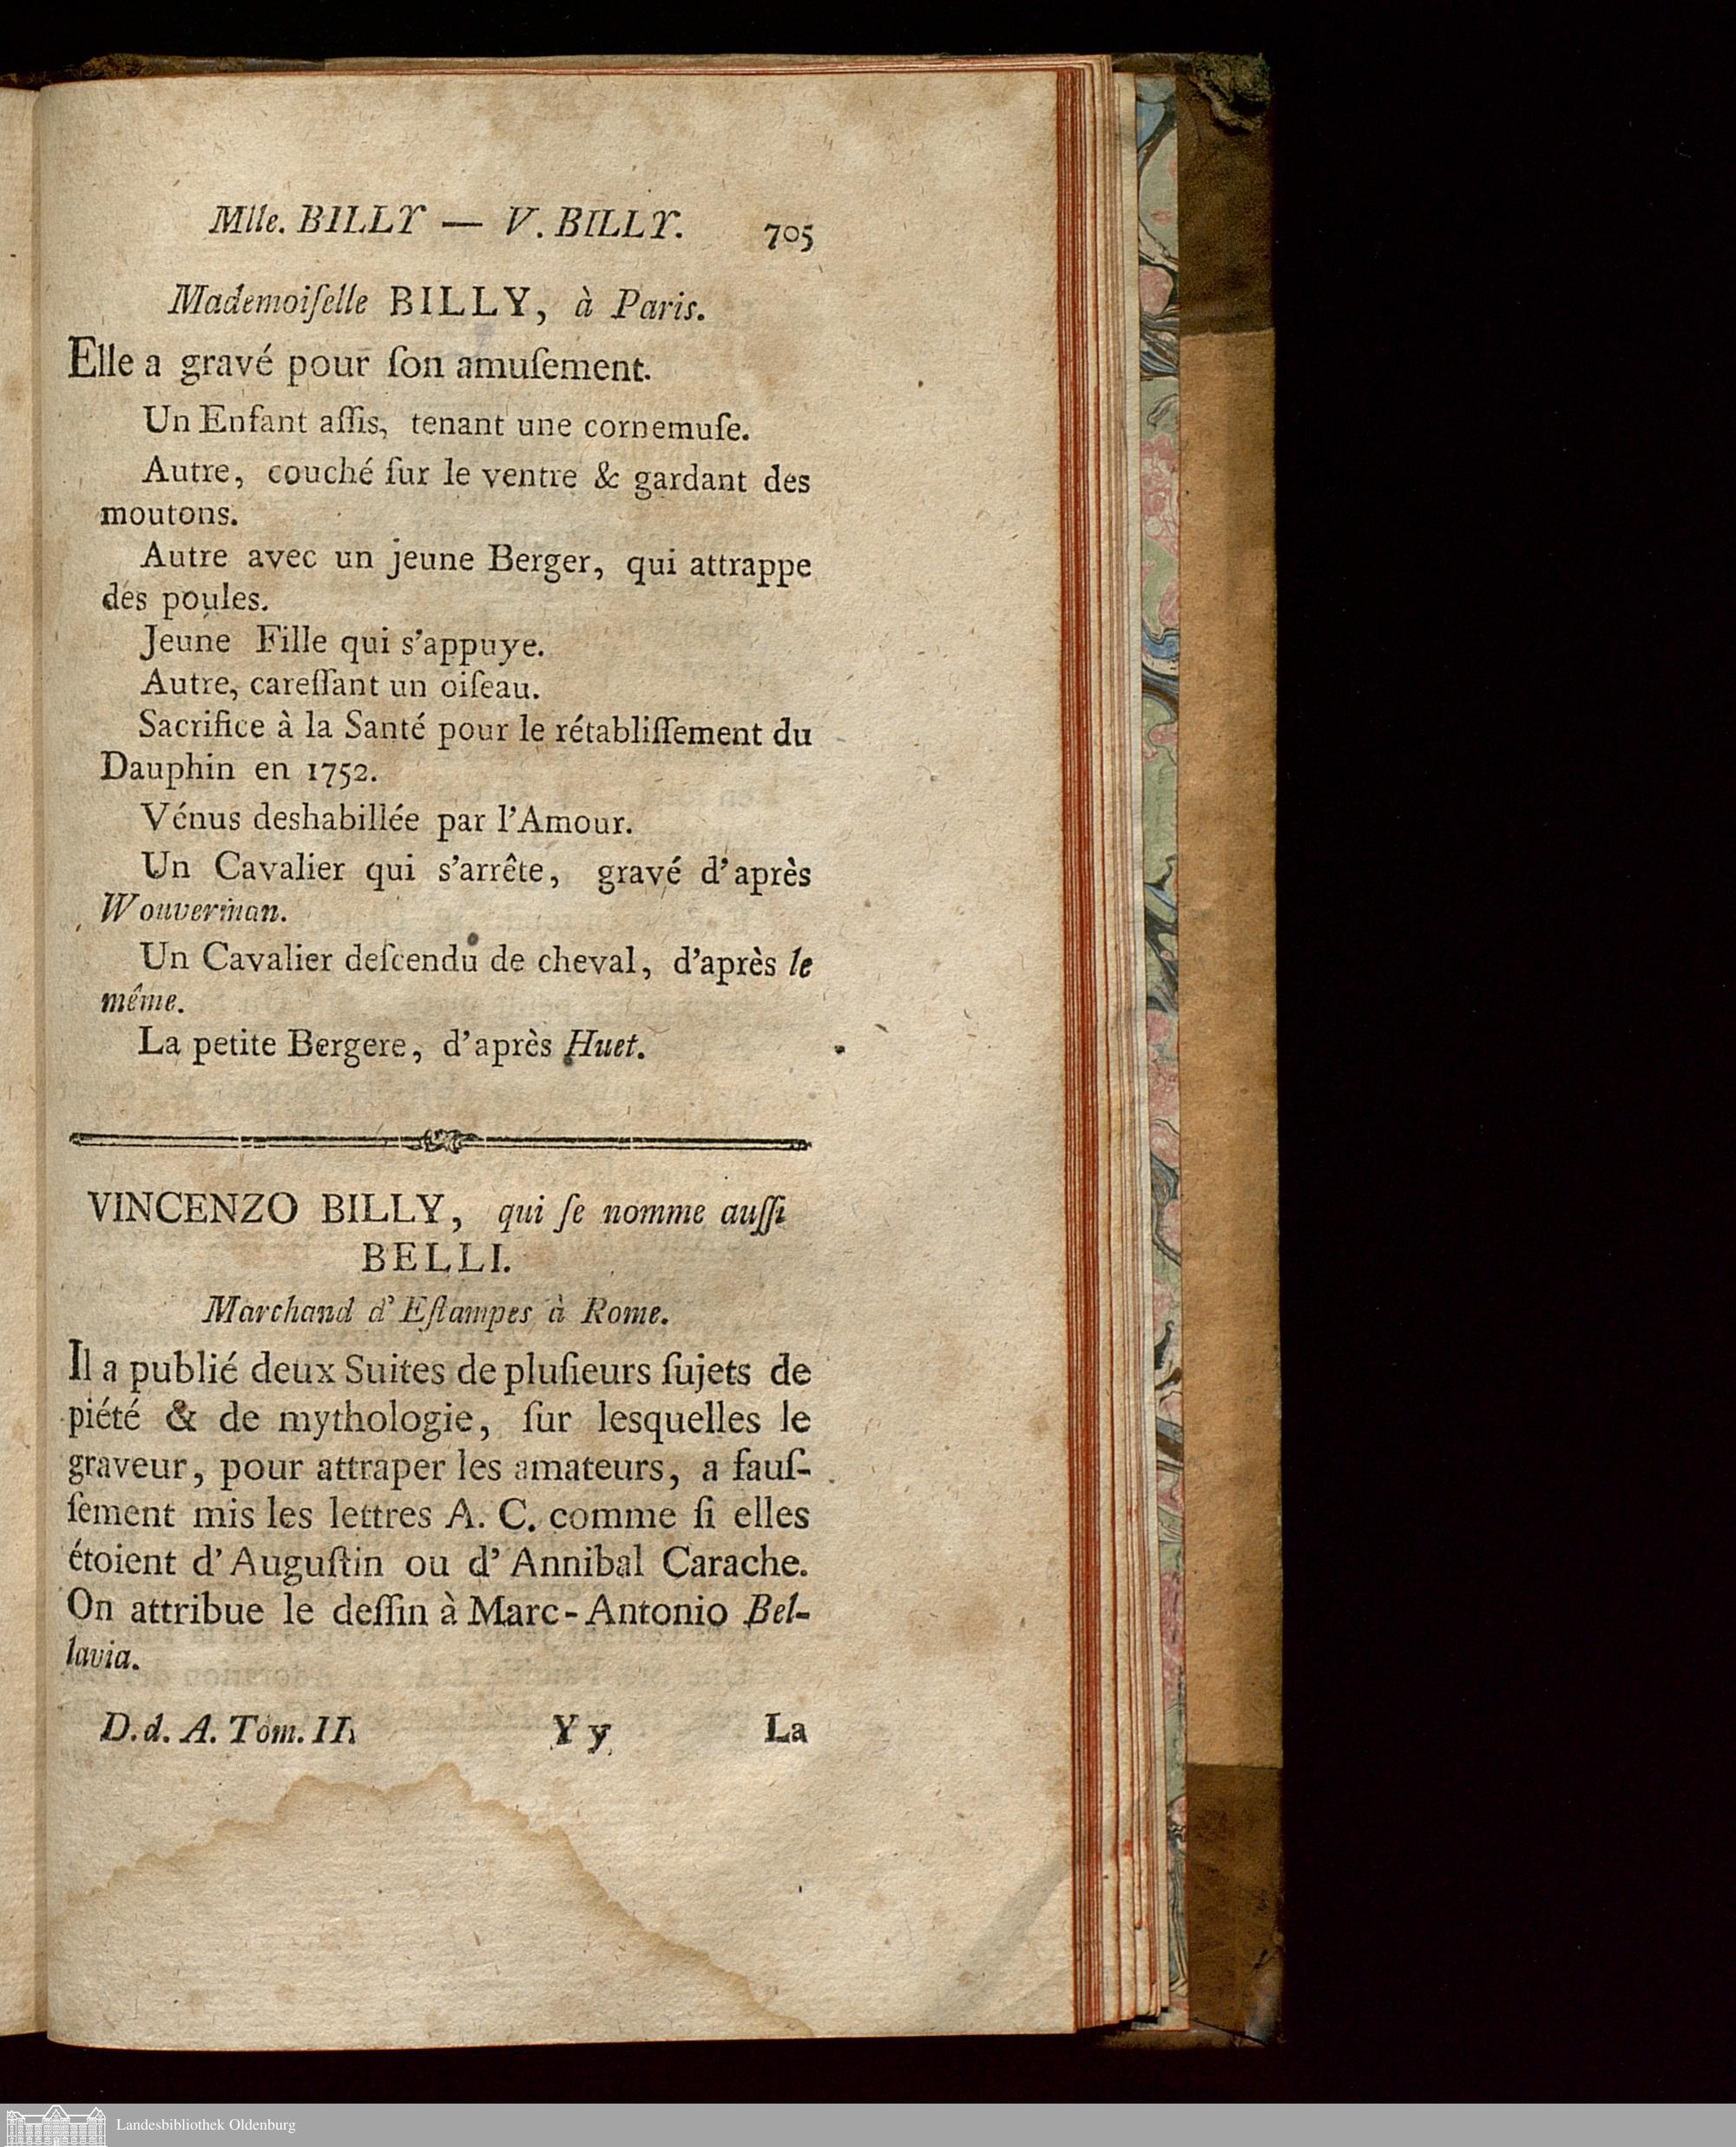 Mlle. BILLY — V. BILLY. 705
Mademoiſelle BILLY, à Paris.
Elle a gravé pour ſon amuſement.
Un Enfant aſſis, tenant une cornemuſe.
Autre, couché ſur le ventre & gardant des
moutons.
Autre avec un jeune Berger, qui attrappe
des poules.
Jeune Fille qui s'appuye.
Autre, careſſant un oiſeau.
Sacrifice à la Santé pour le rétabliſſement du
Dauphin en 1752.
Vénus deshabillée par l'Amour.
Un Cavalier qui s'arrête, gravé d'après
Wouverman.
Un Cavalier deſcendu de cheval, d'après le
même.
La petite Bergere, d'après Huet.
VINCENZO BILLY, qui ſe nomme auſſi
BELLI.
Marchand d'Eſtampes à Rome.
Il a publié deux Suites de pluſieurs ſujets de
piété & de mythologie, ſur lesquelles le
graveur, pour attraper les amateurs, a fauſ-
ſement mis les lettres A. C. comme ſi elles
étoient d'Auguſtin ou d'Annibal Carache.
On attribue le deſſin à Marc-Antonio Bel-
lavia.
D. d. A. Tom. II. Y y La
Landesbibliothek Oldenburg